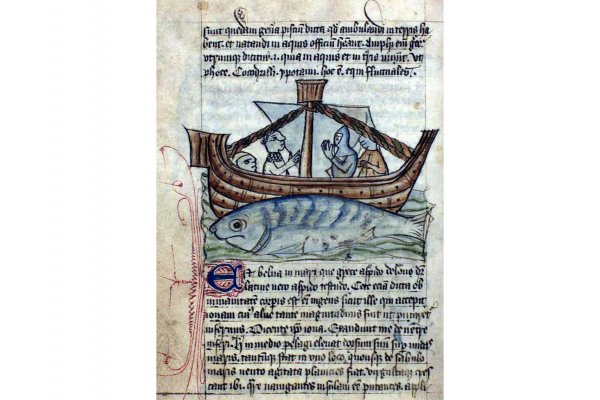 sunt quedam gen̄a pisciū dicta qd̄ ambulandi in terris ha
bent. et natandi in aquis officiū hēant. Amphi em̄ gre
.i. quia in aquis et in tr̄is uiuūt. ut
phoce. Cocodrilli. ypotami. hoc ē. equi fluctuales.
Est belua in mari que grece aspido delone dr̄
latine uero aspido testudo. Cete eciā dicta ob
inmanitatem corp̄is est em̄ ingens sicut ille qui excepit
ionam cuiꝰ aluꝰ tante magnitudinis fuit ut putaret
infernus. Dicente ip̄o iona. Exaudiuit me de uentre
inferi. in medio pelagi eleuat dorsum suū sup̄ undas
maris. tantumque stat in uno loco. quousque de sabulo
maris uento agitata planicies fiat. uirgultaque cres
cant ibi. nauigantes insulam eē putantes. appli